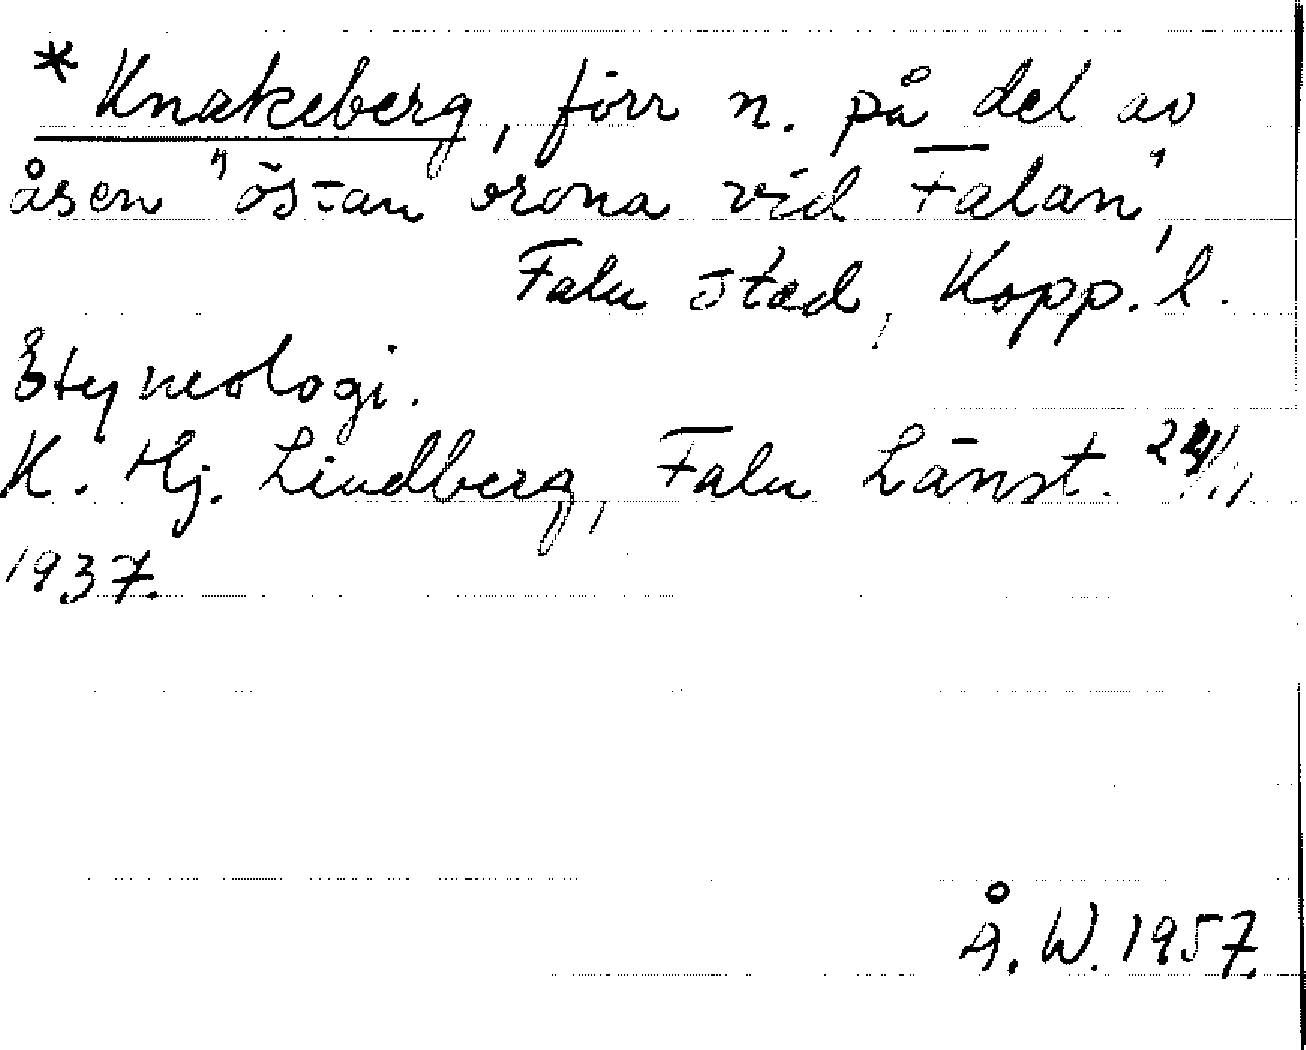 * Knakeberg, förr n. på del av
åsen "östan orona vid Falan",
Falu stad, Kopp. l.
Etymologi.
K. Hj. Lindberg, Falu Länst.
1937.
Å. W. 1957.